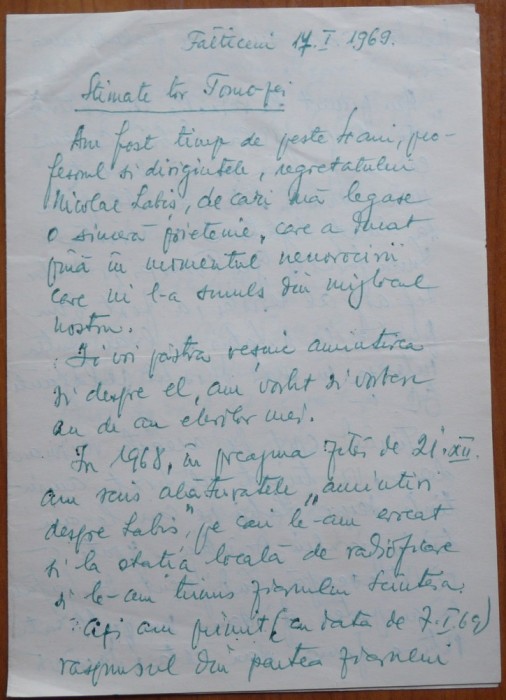 Fălticeni 17.I.1969.
Stimate tov Tomozei
Am fost timp de peste 3 ani, pro-
fesorul si dirigintele, regretatului
Nicolae Labis, de cari mă legase
o sinceră prietenie, care a durat
până în momentul nenorocirii
care ni l-a smuls din mijlocul
nostru.
Îi voi păstra vesnic amintirea
și despre el, am vorbit si vorbesc
an de an elevilor mei.
In 1968, în preajma zilei de 21.XII.
am scris alăturatele „amintiri
despre Labis", pe cari le-am evocat
si la statia locală de radioficare
și le-am trimis ziarului Scânteia.
Azi am primit (cu data de 7.I.69)
raspunsul din partea ziarului